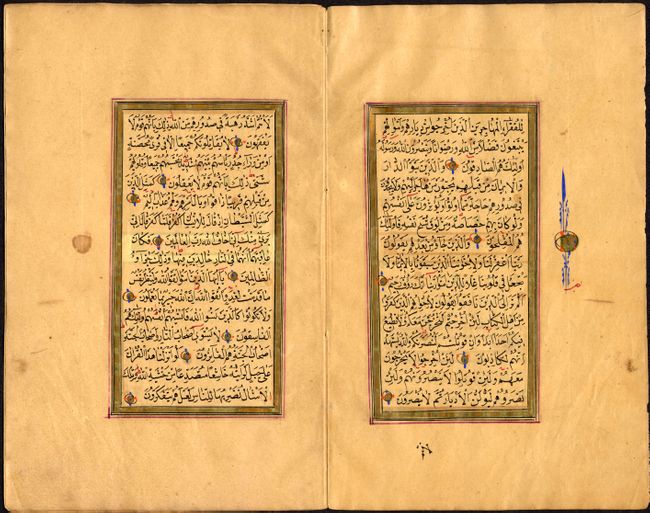 للفقراء المهاجرين الذين اخرجوا من ديارهم واموالهم
يبتغون فضلا من الله ورضوانا وينصرون الله ورسوله
اولئك هم الصادقون والذين تبوؤا الدار
والايمان من قبلهم يحبون من هاجر اليهم ولا يجدون
في صدورهم حاجة مما اوتوا ويؤثرون على انفسهم
ولو كان بهم خصاصة ومن يوق شح نفسه فاولئك
هم المفلحون والذين جاؤا من بعدهم يقولون
ربنا اغفر لنا ولاخواننا الذين سبقونا بالايمان ولا
تجعل في قلوبنا غلا للذين آمنوا ربنا انك رؤف رحيم
الم تر الى الذين نافقوا يقولون لاخوانهم الذين كفروا
من اهل الكتاب لئن اخرجتم لنخرجن معكم ولا نطيع
فيكم احدا ابدا وان قوتلتم لننصرنكم والله يشهد
انهم لكاذبون لئن اخرجوا لا يخرجون
معهم ولئن قوتلوا لا ينصرونهم ولئن
نصروهم ليولن الادبار ثم لا ينصرون
لانتم اشد رهبة في صدورهم من الله ذلك بانهم قوم لا
يفقهون لا يقاتلونكم جميعا الا في قرى محصنة
او من وراء جدر باسهم بينهم شديد تحسبهم جميعا وقلوبهم
شتى ذلك بانهم قوم لا يعقلون كمثل الذين
من قبلهم قريبا ذاقوا وبال امرهم ولهم عذاب اليم
كمثل الشيطان اذ قال للانسان اكفر فلما كفر قال اني
برئ منك اني اخاف الله رب العالمين فكان
عاقبتهما انهما في النار خالدين فيها وذلك جزاؤا
الظالمين يا ايها الذين آمنوا اتقوا الله ولتنظر نفس
ما قدمت لغد واتقوا الله ان الله خبير بما تعملون
ولا تكونوا كالذين نسوا الله فانسيهم انفسهم اولئك هم
الفاسقون لا يستوي اصحاب النار واصحاب الجنة
اصحاب الجنة هم الفائزون لو انزلنا هذا القرآن
على جبل لرايته خاشعا متصدعا من خشية الله وتلك
الامثال نضربها للناس لعلهم يتفكرون